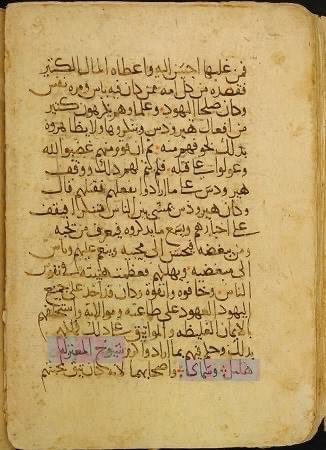 فمن غلبها احسن اليه واعطاه المال الكثير
فقصده من كل امه ممن كان فيه باس وقوه نفس
وكان صلحا اليهود وعلماوهم يكرهون كثير
من افعال هيرودس وينكروها ولا يظاهروه
بذلك لخوفهم منه ثم ان قوم منهم غضبوا لله
وعولوا على قتله فلم يتم لهم ذلك ووقف
هيرودس على ما ارادوا بفعلهم فقتلهم قال
وكان هيرودس يمشي بين الناس متنكرا ليقف
على اخبارهم ويسمع ما يذكروه فيعرف من يحبه
ومن يبغضه فيحسن الى محبيه وينعم عليهم
الى مبغضيه ويهلكهم فعظمت هيبته في نفوس
الناس وخافوه واتقوه وكان قد اخذ على جميع
اليهود العهود على طاعته وموالاته واستحلفهم
الايمان الغليظه والمواثيق على ذلك
بذلك بما ارادوا شيوخ المعتزله
هلال وشماي واصحابهما لانه كان